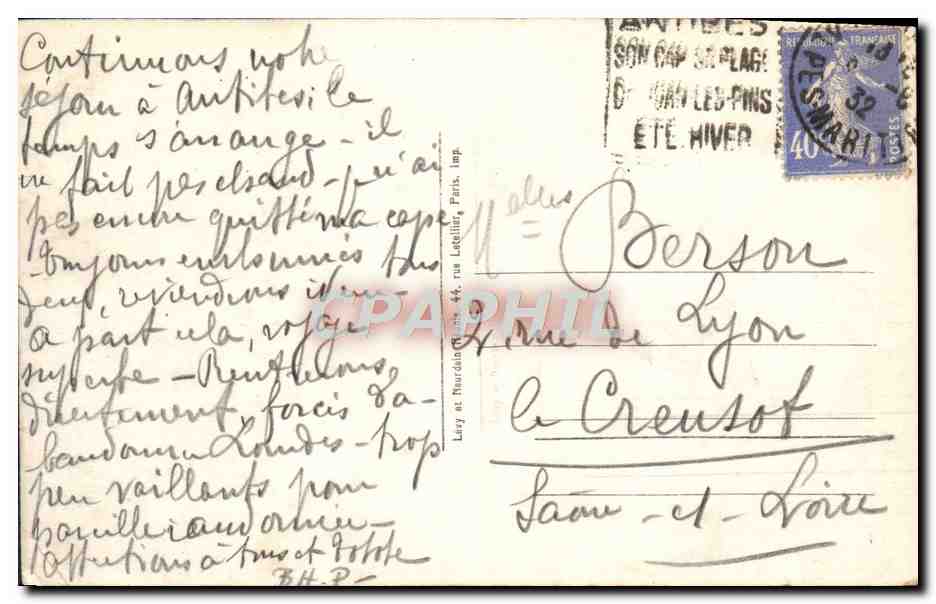 Continuons notre
séjour à Antibes, le
temps s'arrange - il
ne fait pas chaud - j'ai
pas encore quitté ma cape
toujours enrhumés tous
deux, reviendrons idem -
à part cela, voyage
superbe - Rentrerons
directement, forcés d'a-
bandonner Lourdes - trop
peu vaillants pour
pareille randonnée -
affections à tous et
B H. P -
ANTIBES
SON CAP SA PLAGE
DE JUAN-LES-PINS
ÉTÉ HIVER
32
PES-MARIT
REPUBLIQUE FRANÇAISE
40c
POSTES
Lévy et Neurdein Réunis, 44, rue Letellier, Paris. Imp.
Melles Berson
2, rue de Lyon
le Creusot
Saône-et-Loire
CPAPHIL